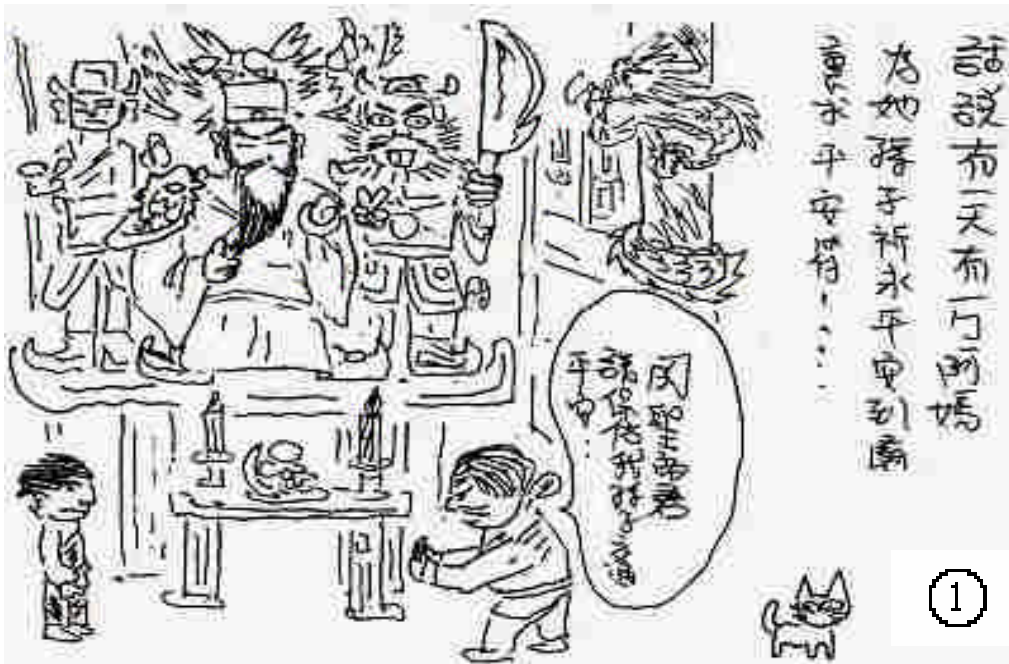 話說有一天有一阿媽
為她孫子祈求平安到廟
裏求平安符....
関聖帝君
請保佑我孫子交通
平安..
①